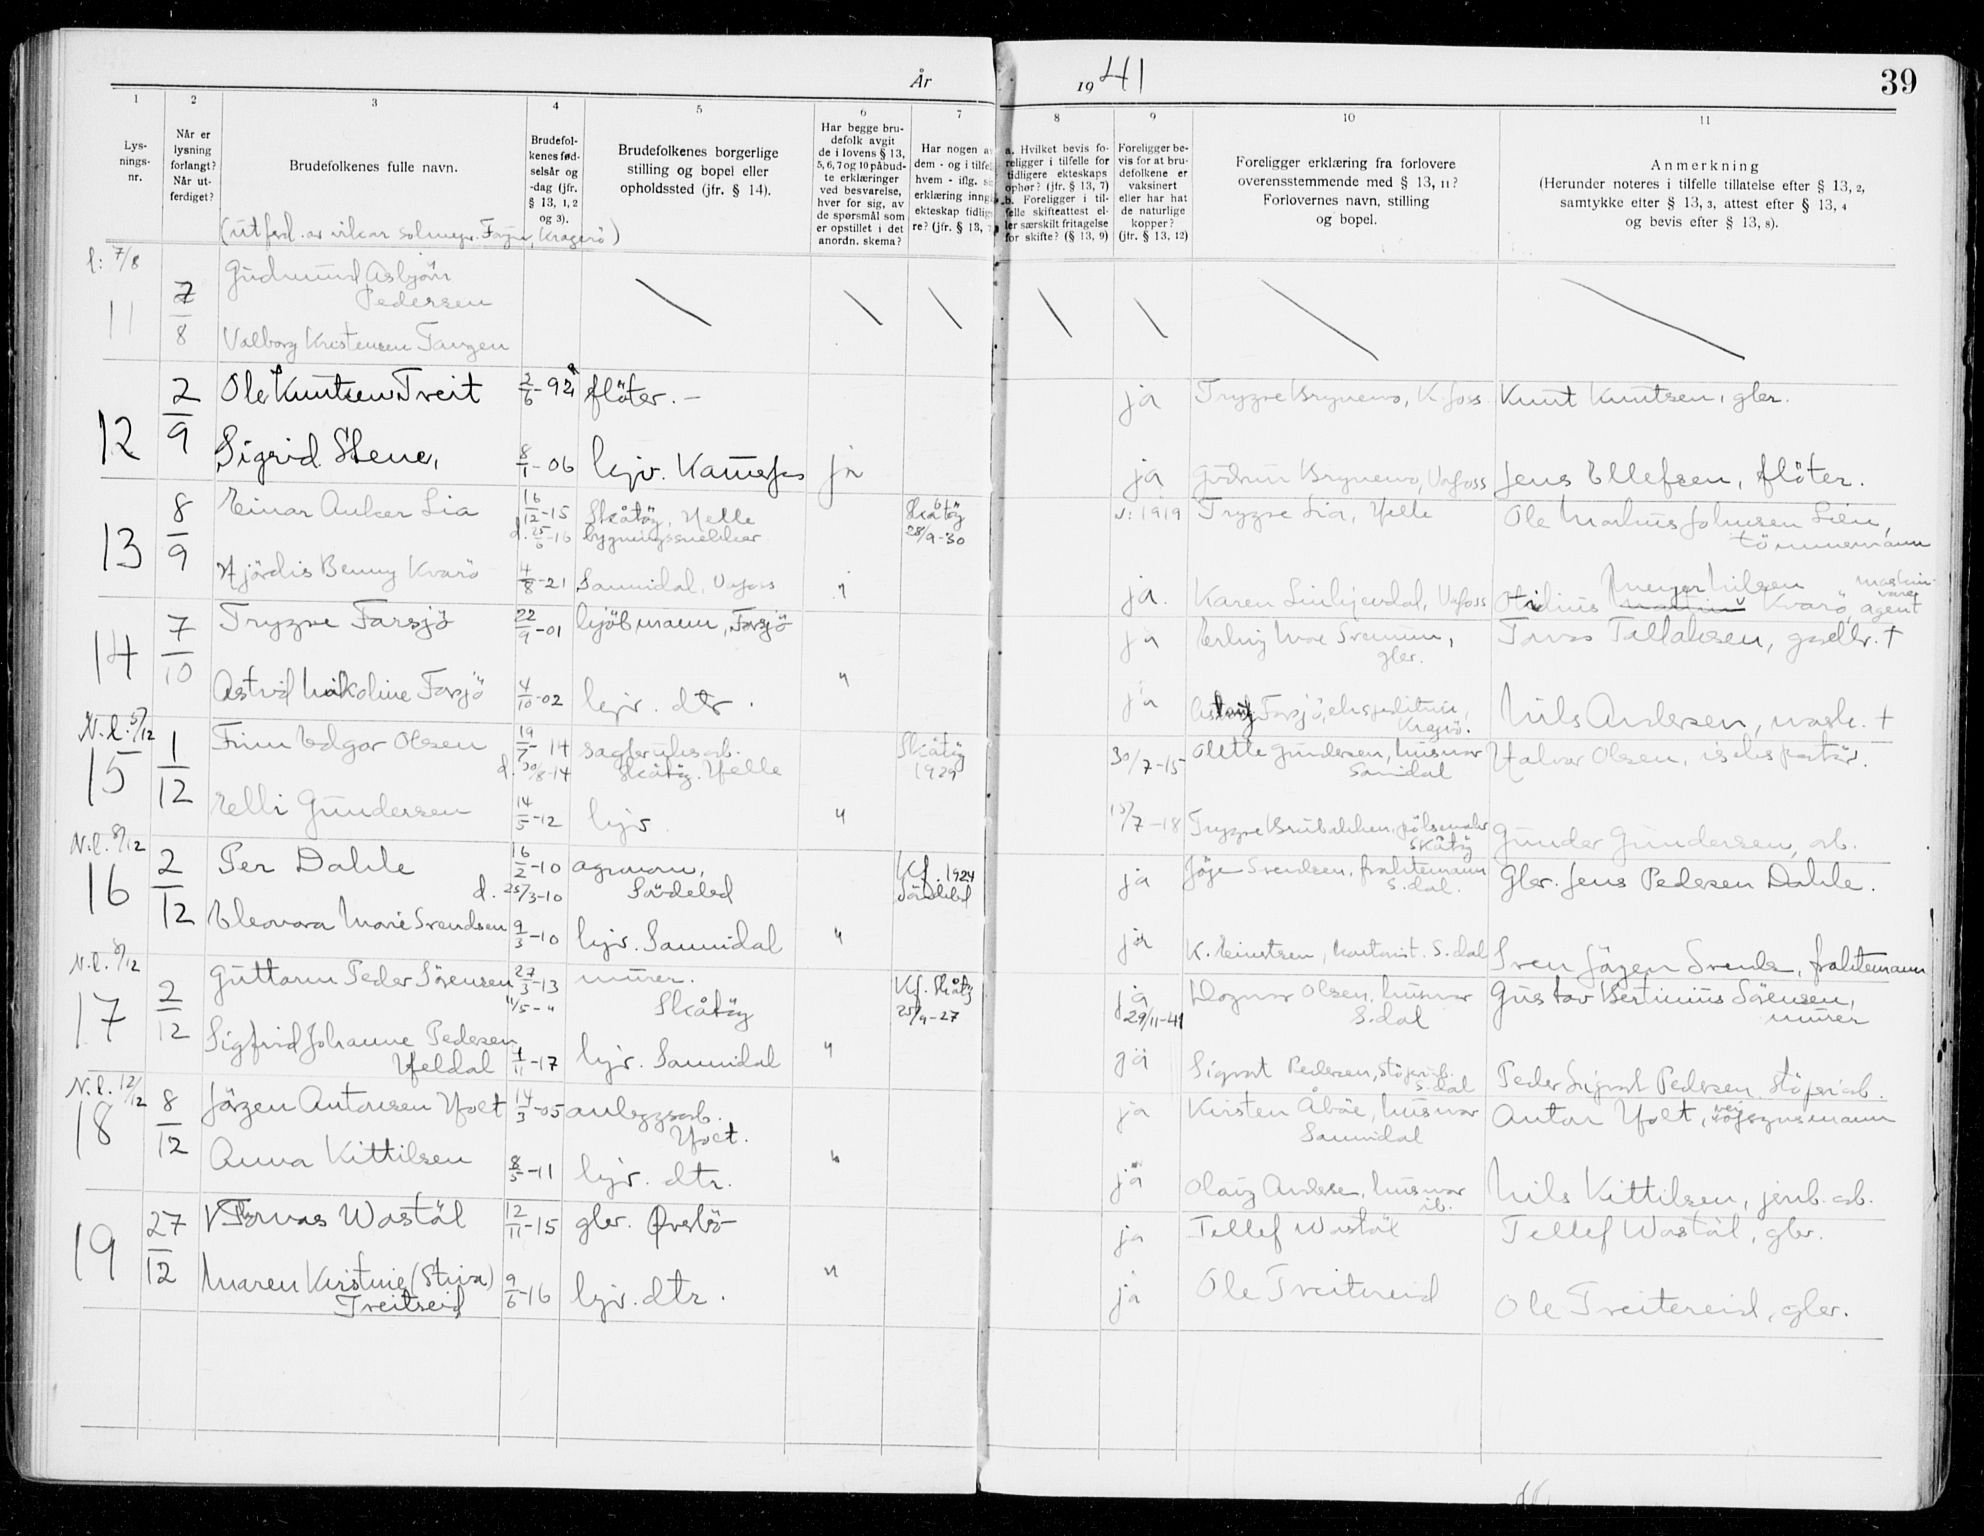 År 1941
39
1 2 3 4 5 6 7 8 9 10 11
Lys-
nings-
nr.
Når er
lysning
forlangt?
Når ut-
ferdiget?
Brudefolkenes fulle navn.
Brudefol-
kenes fød-
selsår og
-dag (jfr.
§ 13, 1, 2
og 3).
Brudefolkenes borgerlige
stilling og bopel eller
opholdssted (jfr. § 14).
Har begge bru-
defolk avgit
de i lovens § 13,
5, 6, 7 og 10 påbud-
te erklæringer
ved besvarelse,
hver for sig, av
de spørsmål som
er opstillet i det
anordn. skema?
Har nogen a
dem - og i tilfel
hvem - iflg. si
erklæring inngå
ekteskap tidlig
re? (jfr. § 13,
a. Hvilket bevis fo-
religger i tilfelle for
tidligere ekteskaps
ophør? (jfr. § 13, 7)
b. Foreligger i til-
felle skifteattest el-
ler særskilt fritagelse
for skifte? (§ 13, 9)
Foreligger be-
vis for at bru-
defolkene er
vaksinert
eller har hat
de naturlige
kopper?
(jfr. § 13, 12)
Foreligger erklæring fra forlovere
overensstemmende med § 13, 11?
Forlovernes navn, stilling
og bopel.
Anmerkning
(Herunder noteres i tilfelle tillatelse efter § 13, 2,
samtykke efter § 13, 3, attest efter § 13, 4
og bevis efter § 13, 8).
(utferd. av vikar soknepr. Kragerö)
l: 7/8
11 7/8 Gudmund Asbjörn
Pedersen
Valborg Kristensen Tangen
12 2/9 Ole Knutsen Treit 2/6-92 flöter. - ja Trygve Brynemo, K.foss Knut Knutsen, gbr.
Sigrid Stene, 8/1-06 hjv. Kamfoss ja ja Gudrun Brynemo, Vafoss Jens Ellefsen, flöter.
13 8/9 Einar Anker Lia 16/12-15 Skåtöy, Helle Skåtöy v: 1919 Trygve Lia, Helle Ole Markus Johnsen Lien,
d. 25/6-16 bygningssnekker 28/9-30 tömmermann
Hjördis Benny Kvarö 4/8-21 Sannidal, Vafoss ja. Karen Vafoss Otidius Meyer Nilsen Kvarö, agent
14 7/10 Trygve Farsjö 22/9-01 kjöbmann, Farsjö ja Erling Moe gbr. Tovas Tellefsen, †
Astrid Nikoline Farsjö 4/10-02 hjv. dtr. " ja Farsjö, ekspeditrise, Kragerö. Nils Andersen, †
N.l. 5/12
15 1/12 Finn Edgar Olsen 19/7-14 sagbruksarb. Skåtöy 30/7-15 Olette Gundersen, husmor Halvor Olsen,
d. 30/8-14 Skåtöy. Helle 1929 Sannidal
Elli Gundersen 14/5-12 hjv. " 15/7-18 Trygve Brubakken, Skåtöy Gunder Gundersen, arb.
N.l. 8/12
16 2/12 Per Dahle 16/2-10 agronom, Kf. 1924 ja Svendsen, fraktemann Gbr. Jens Pedersen Dahle.
d. 25/3-10 Söndeled Söndeled S.dal.
Eleonora Marie Svendsen 9/3-10 hjv. Sannidal " ja K. Einertsen, kontorist. S.dal Sven Jörgen Svends., fraktemann
N.l. 8/12
17 2/12 Guttorm Peder Sörensen 27/3-13 murer. Kf. Skåtöy ja Dagmar Olsen, husmor Gustav Bertinius Sörensen,
11/5-" Skåtöy 25/9-27 29/11-41 S.dal murer
Sigfrid Johanne Pedersen
Heldal 1/11-17 hjv. Sannidal " ja Sigvart Pedersen, S.dal Peder Sigvart Pedersen
N.l. 12/12
18 8/12 Jörgen Antonsen Holt 14/3-05 anleggsarb. ja Kirsten Åbøe, husmor Anton Holt,
Holt. Sannidal
Anna Kittilsen 8/5-11 hjv. dtr. " ja Olaug Anders., husmor ib. Nils Kittilsen, jernb.arb.
19 27/12 Tovas Wastöl 12/11-15 gbr. Ørslö ja Tellef Wastöl Tellef Wastöl, gbr.
Maren Kirstine (Stina)
Treitereid 9/6-16 hjv. dtr. " ja Ole Treitereid Ole Treitereid, gbr.